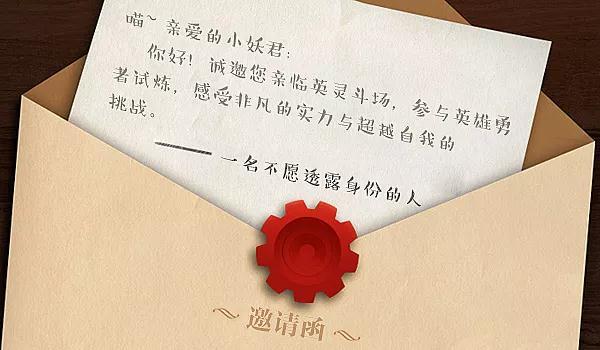 喵~亲爱的小妖君:
你好!诚邀您亲临英灵斗场,参与英雄勇
者试炼,感受非凡的实力与超越自我的
挑战。
——一名不愿透露身份的人
~邀请函~